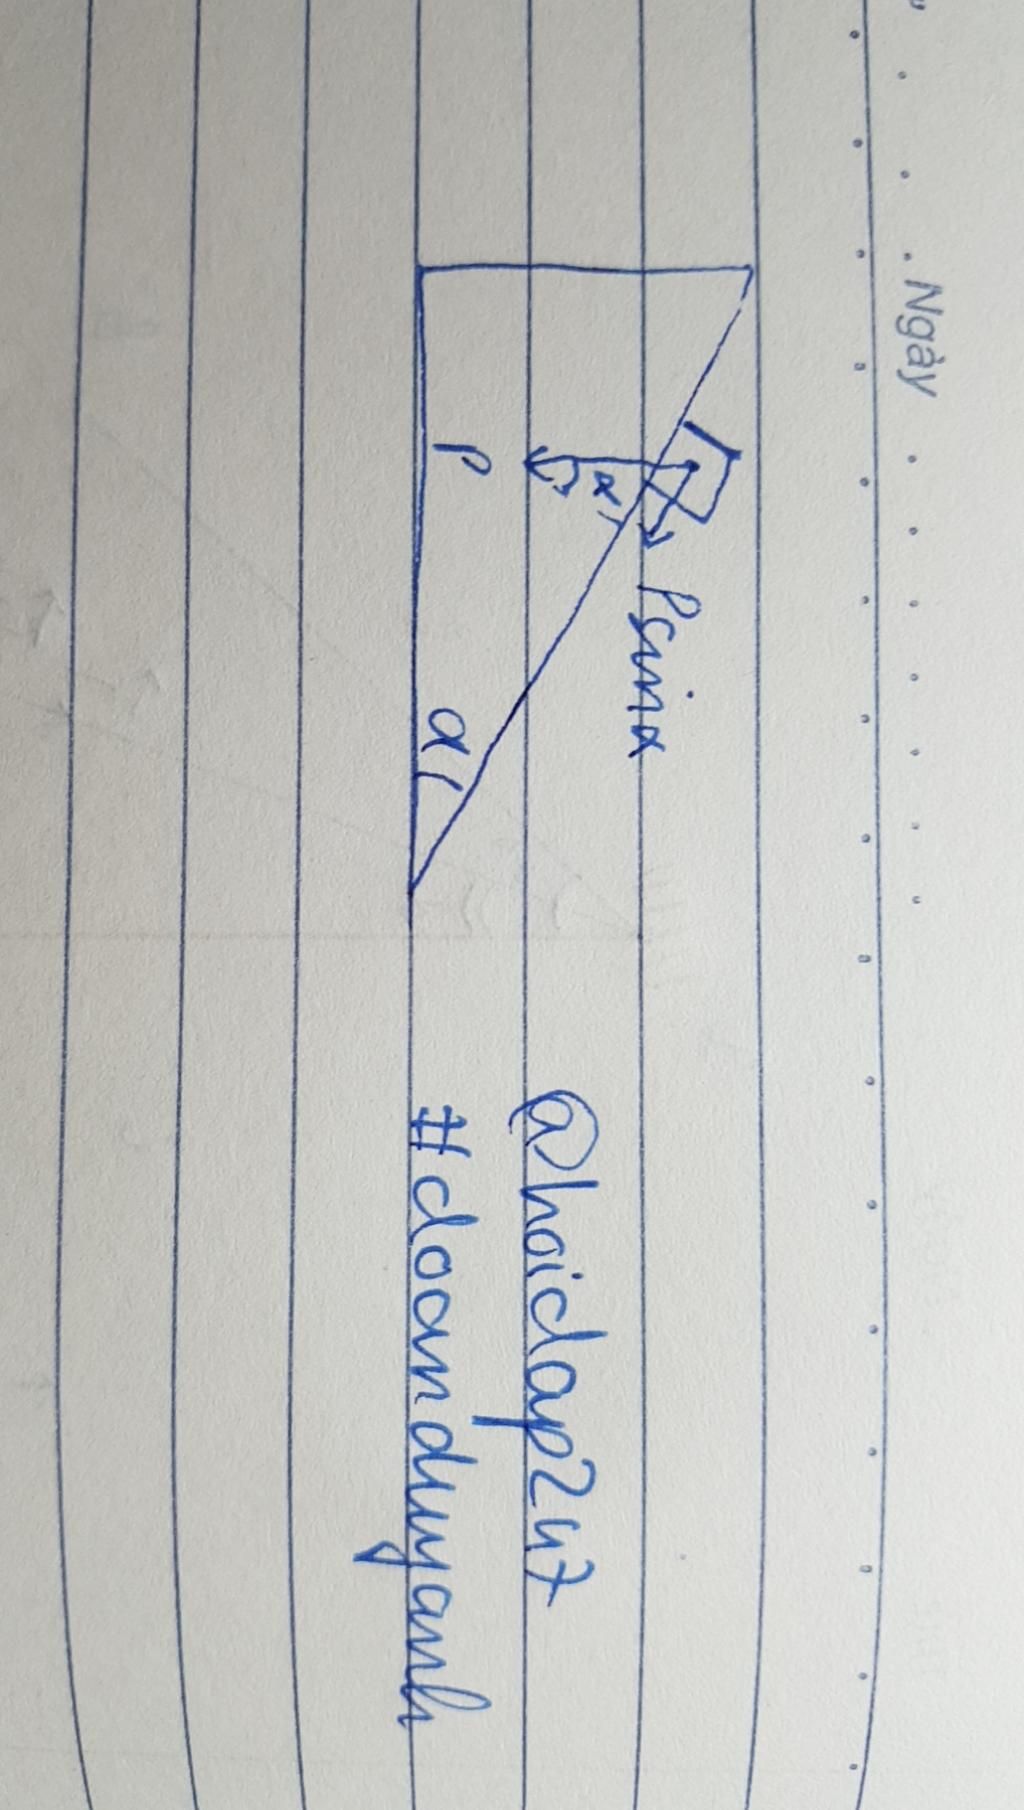 Ngày
Psinα
α
P
α
@hoidap247
#doanduyanh